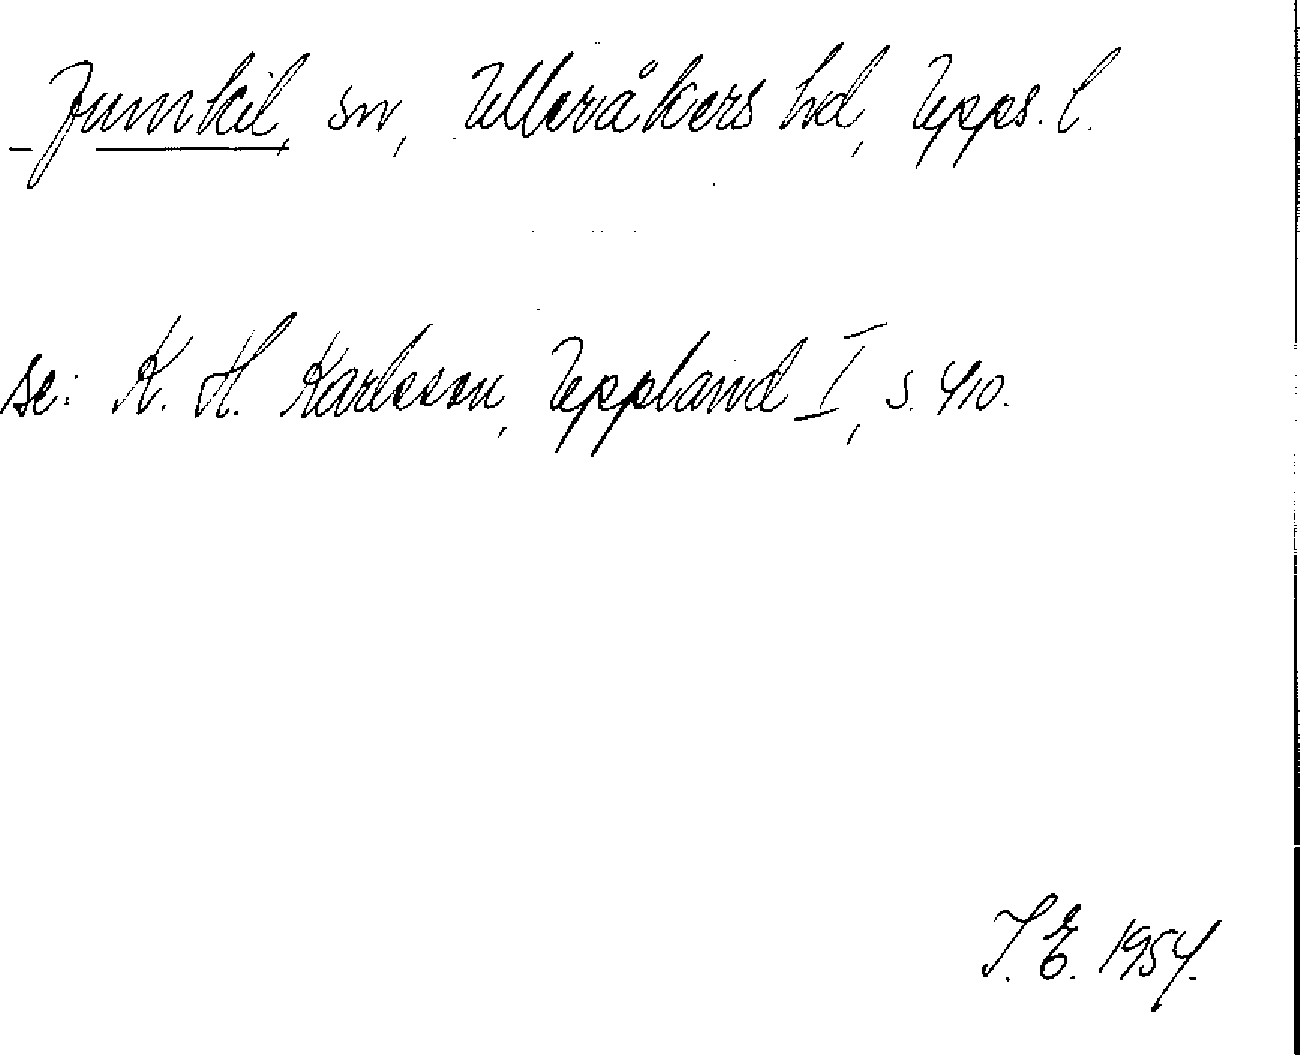 Jumkil, sn, Ulleråkers hd, Upps. l.
se: K. H. Karlsson, Uppland I, s. 410.
I. E. 1954.